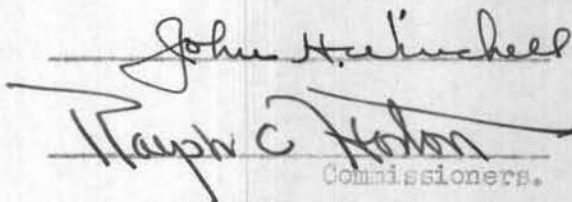 John H. Winchell
Ralph C Horton
Commissioners.